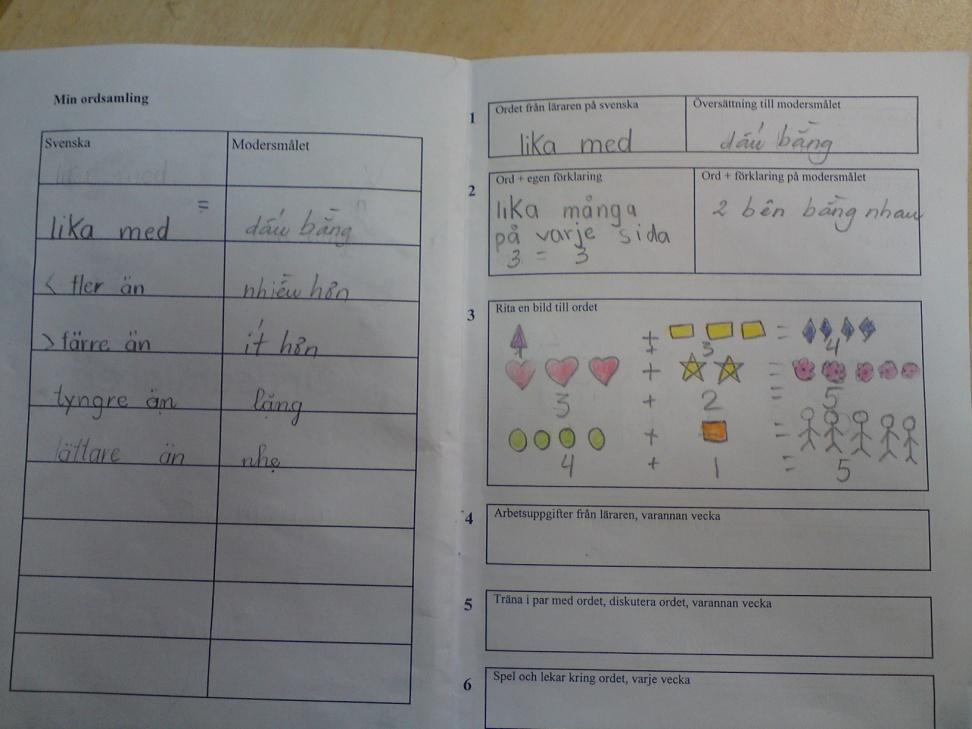 Min ordsamling
Svenska Modersmålet
=
lika med dấu bằng
< fler än nhiều hơn
> färre än ít hơn
tyngre än lặng
lättare än nhẹ
1 Ordet från läraren på svenska Översättning till modersmålet
lika med dấu bằng
2 Ord + egen förklaring Ord + förklaring på modersmålet
lika många 2 bên bằng nhau
på varje sida
3 = 3
3 Rita en bild till ordet
+ =
1 + 3 4
+ =
3 + 2 = 5
+ =
4 + 1 = 5
4 Arbetsuppgifter från läraren, varannan vecka
5 Träna i par med ordet, diskutera ordet, varannan vecka
6 Spel och lekar kring ordet, varje vecka